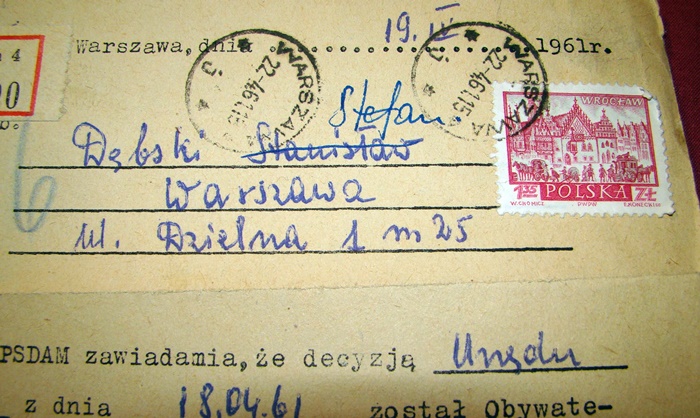 Warszawa, dnia 19. IV 1961r.
4
00
WARSZAWA
22-4 61.15
WARSZAWA
22-4 61.15
WROCŁAW
Stefan.
Dębski Stanisław
Warszawa
1.15 POLSKA ZŁ
W.CHOMICZ PWPW
ul. Dzielna 1 m 25
PSDAM zawiadamia, że decyzją Urzędu
z dnia 18.04.61 został Obywate-